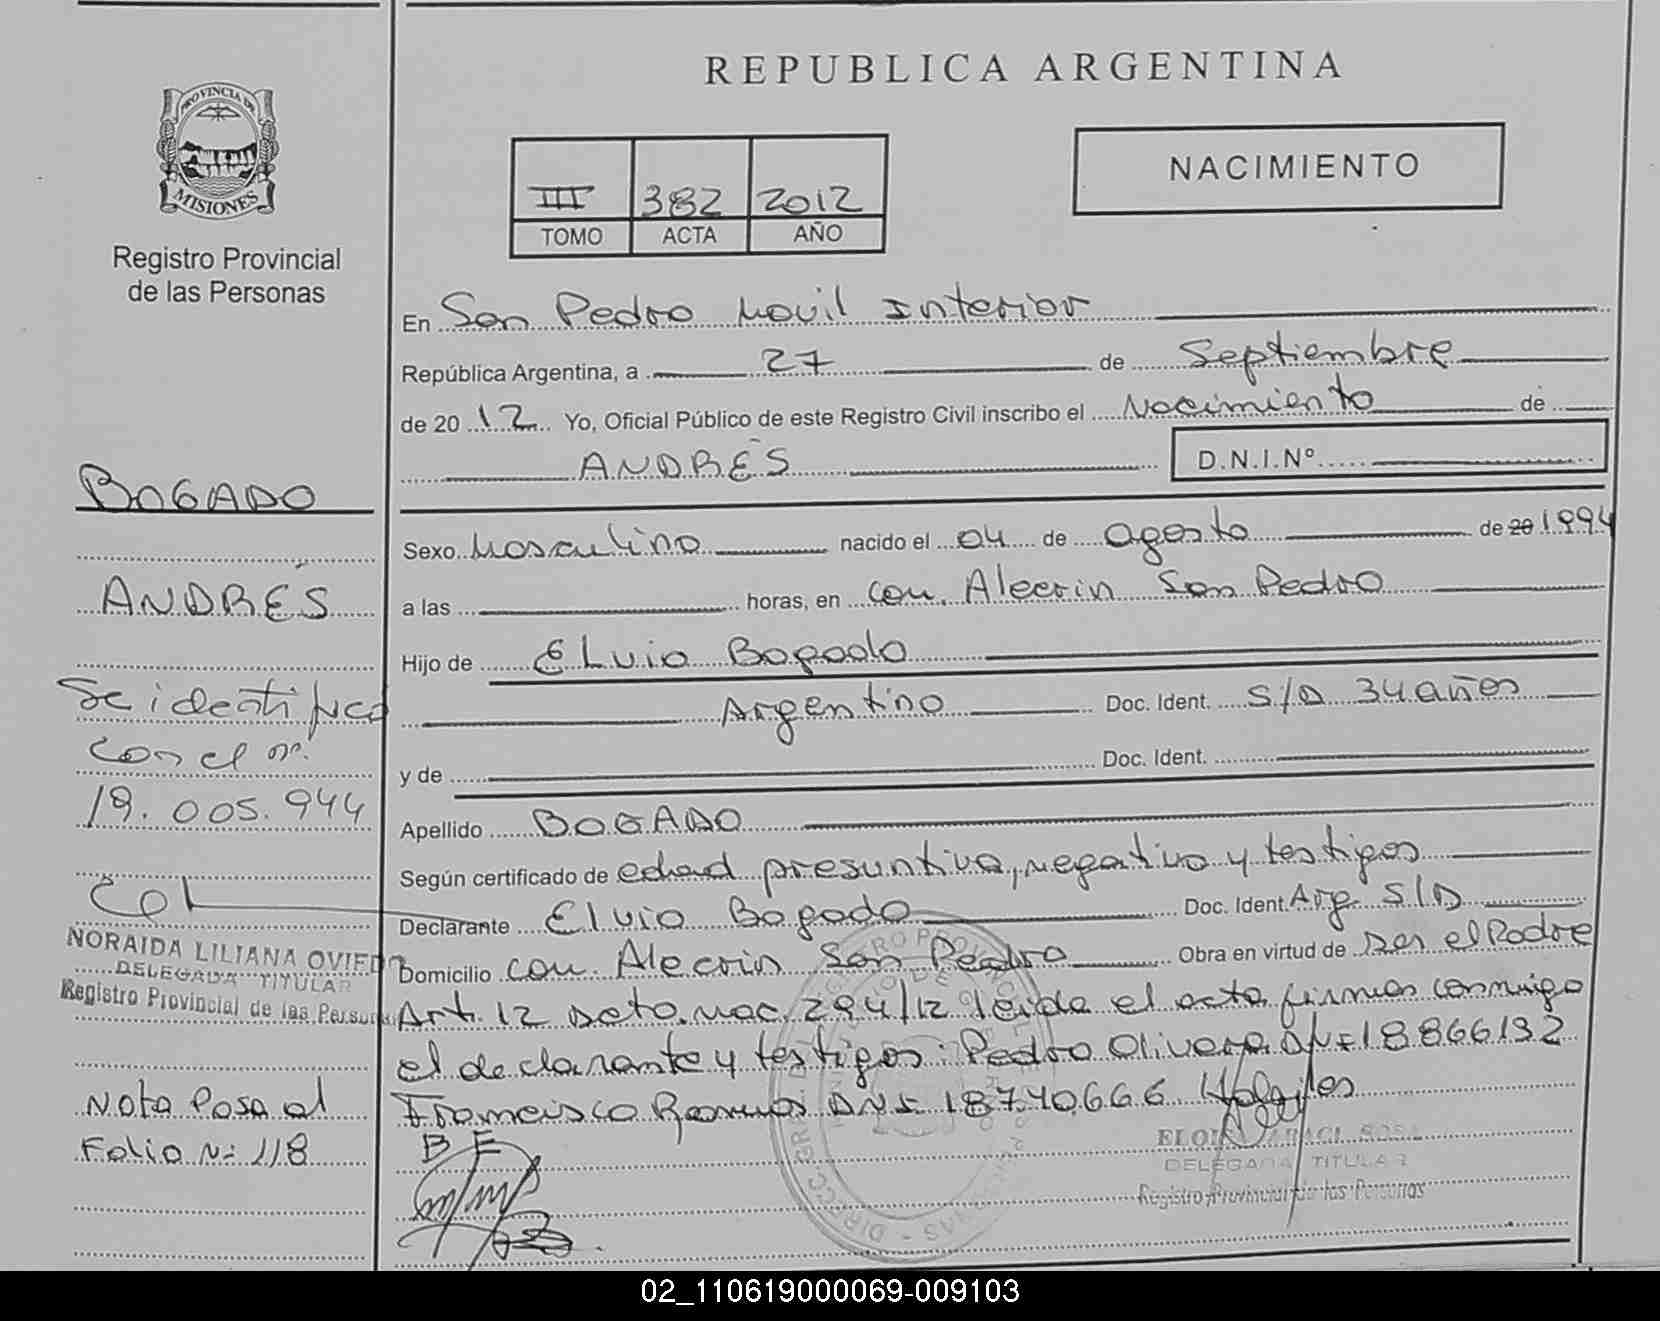 REPUBLICA ARGENTINA
PROVINCIA DE
MISIONES
Registro Provincial
de las Personas
III 382 2012
TOMO ACTA AÑO
NACIMIENTO
En San Pedro Movil Interior
República Argentina, a 27 de Septiembre
de 2012 Yo, Oficial Público de este Registro Civil inscribo el Nacimiento de
ANDRÉS D.N.I.Nº
Sexo Masculino nacido el 04 de agosto de 20 1994
a las horas, en con. Alecrin San Pedro
Hijo de Elvio Bogado
Argentino Doc. Ident. S/D 34 años
y de Doc. Ident.
Apellido BOGADO
Según certificado de edad presuntiva, negativo y testigos
Declarante Elvio Bogado Doc. Ident. Arg. S/D
Domicilio con. Alecrin San Pedro Obra en virtud de ser el Padre
Art. 12 Dcto. nac. 294/12 leida el acta firman conmigo
el declarante y testigos: Pedro Olivera DNI 18866192
Francisco Ramos DNI 18740666
B E
DELEGADA TITULAR
Registro Provincial de las Personas
BOGADO
ANDRÉS
Se identifica
con el nº.
19.005.944
NORAIDA LILIANA OVIEDO
DELEGADA TITULAR
Registro Provincial de las Person
Nota Pasa al
Folio Nº 118
02_110619000069-009103